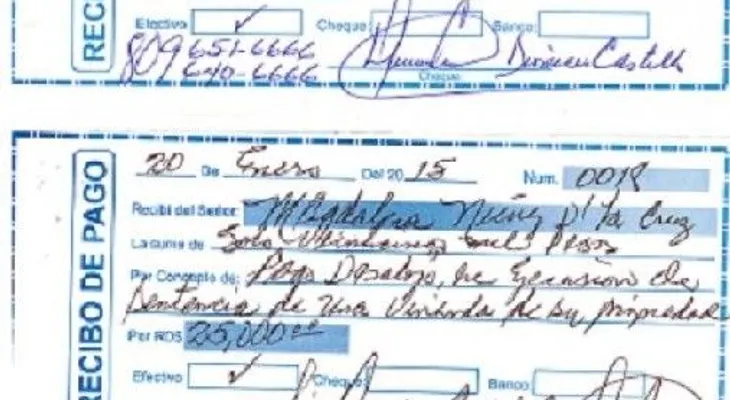 REC
Efectivo ✓ Cheque Banco:
809 651-6666
640-6666
Cheque
RECIBO DE PAGO
20 De Enero Del 20 15 Num. 0018
Recibi del Señor: Magdalena Nuñez D' La Cruz
La suma de mil Pesos
Por Concepto de: Pago Desalojo, en Ejecusion de
Sentencia de una Vivienda de su propiedad
Por RD$ 25,000.00
Efectivo ✓ Cheque Banco